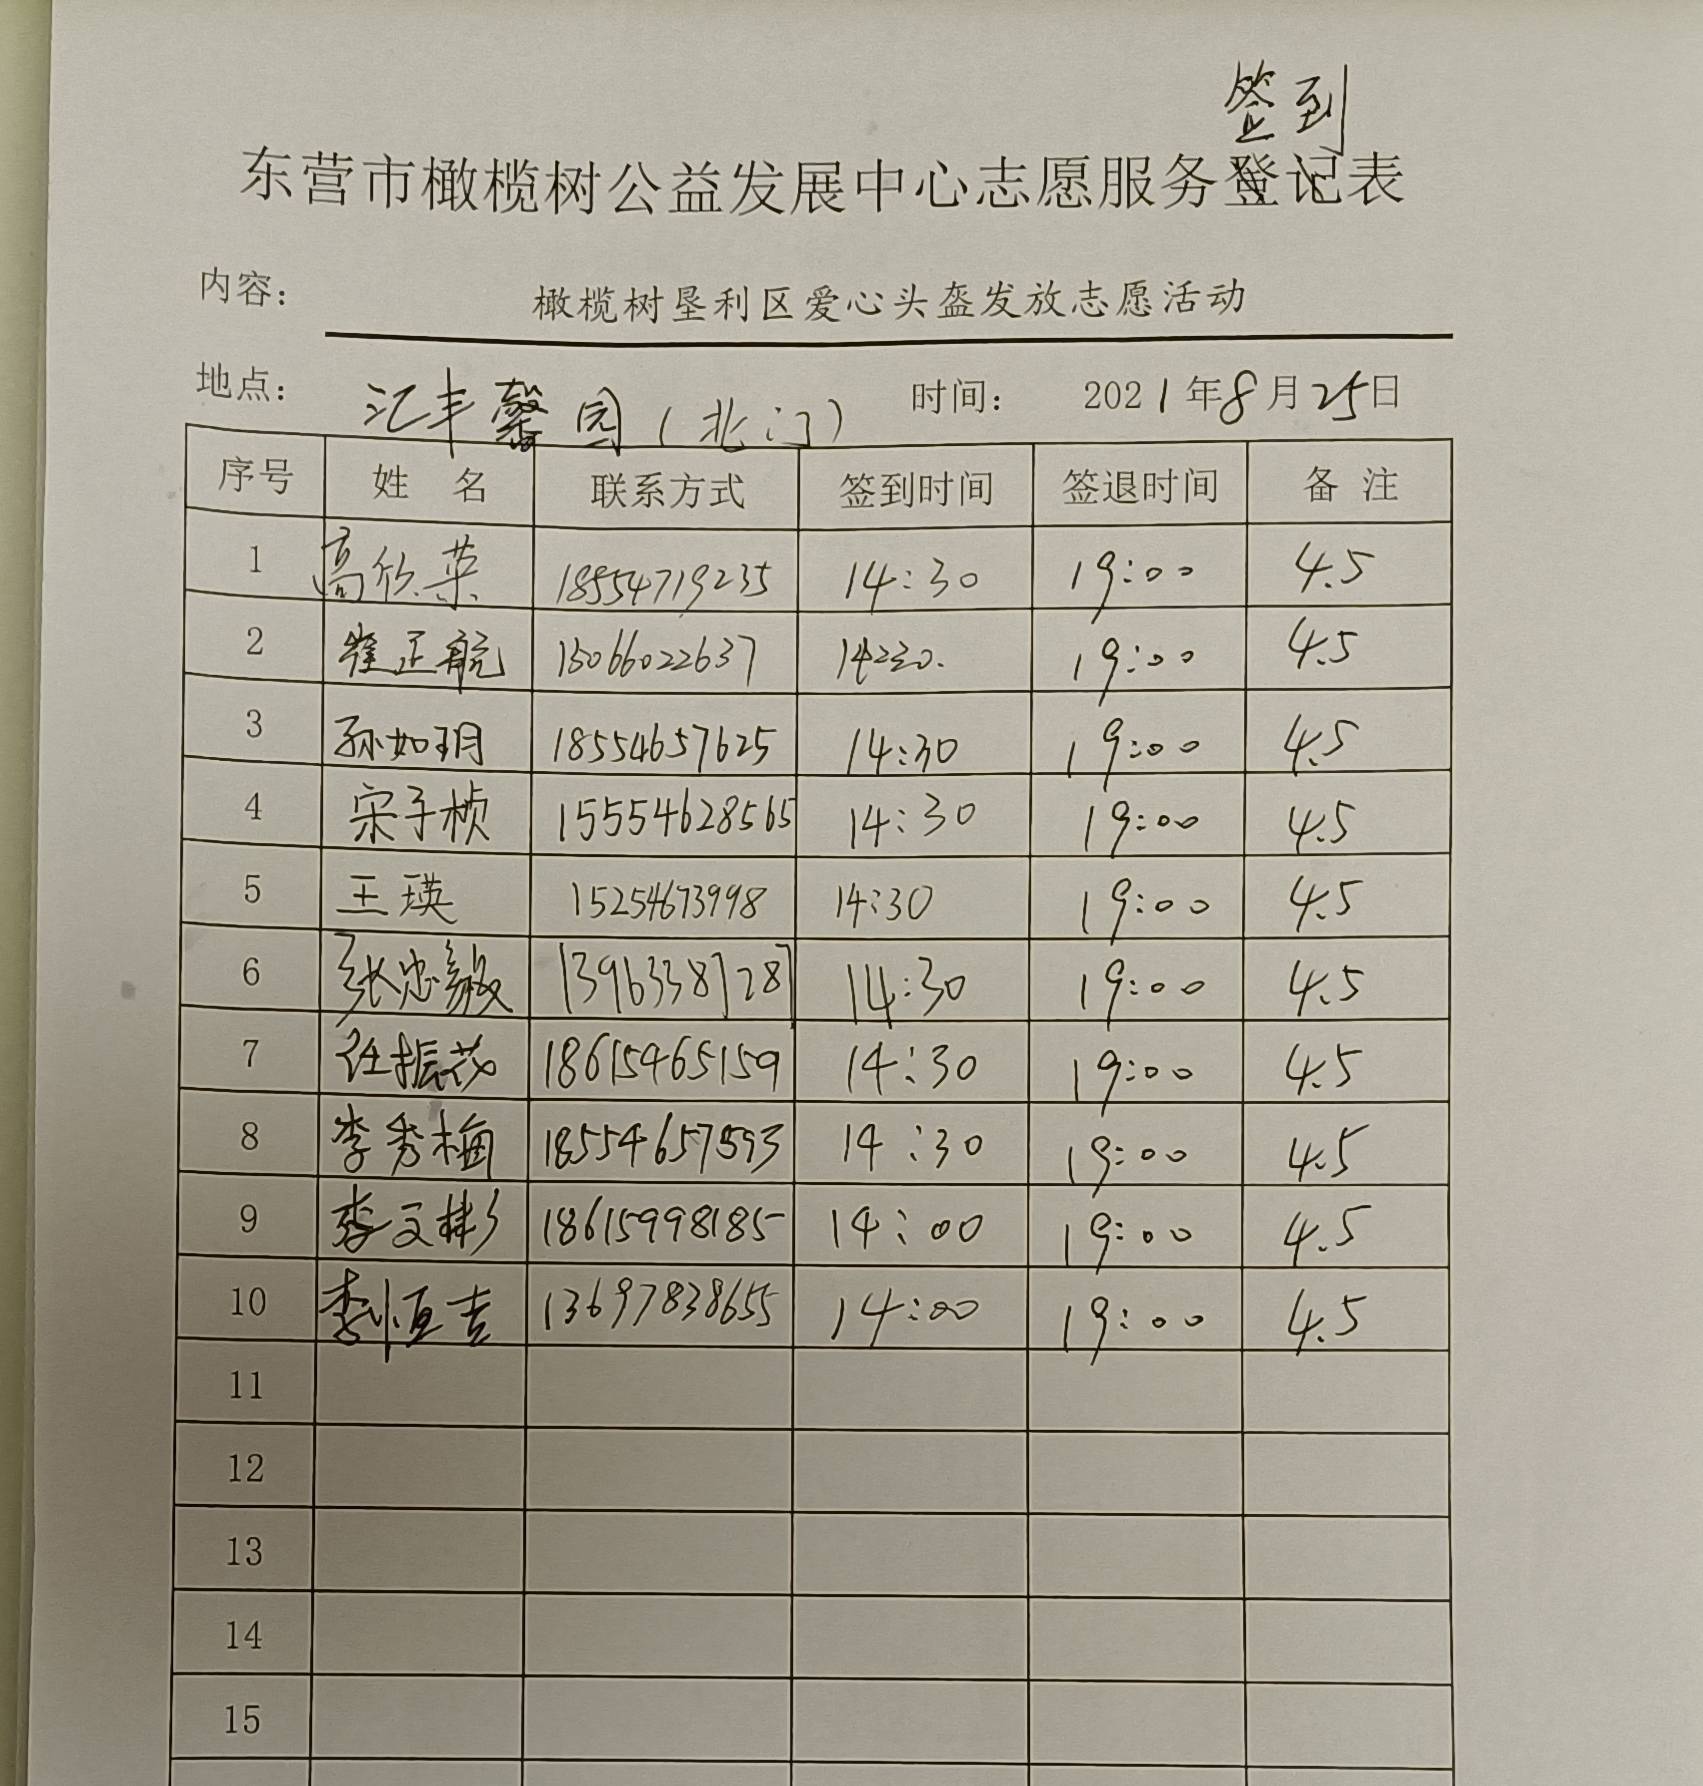 签到
东营市橄榄树公益发展中心志愿服务登记表
内容： 橄榄树垦利区爱心头盔发放志愿活动
地点： 汇丰馨园（北门） 时间： 2021年8月25日
序号 姓 名 联系方式 签到时间 签退时间 备 注
1 高欣荣 18554719235 14:30 19:00 4.5
2 崔正航 15066022637 14:30. 19:00 4.5
3 孙如玥 18554657625 14:30 19:00 4.5
4 宋子桢 15554628565 14:30 19:00 4.5
5 王瑛 15254673998 14:30 19:00 4.5
6 张忠毅 13963387287 14:30 19:00 4.5
7 任振花 18615465159 14:30 19:00 4.5
8 李秀梅 18554657593 14:30 19:00 4.5
9 李文彬 18615998185 14:00 19:00 4.5
10 李恒吉 13697838655 14:00 19:00 4.5
11
12
13
14
15